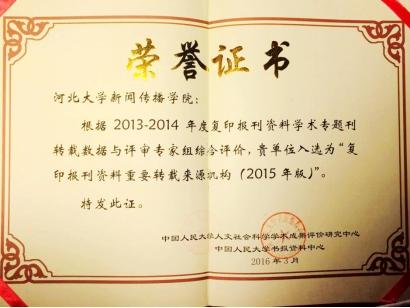 荣誉证书
河北大学新闻传播学院:
根据 2013-2014 年度复印报刊资料学术专题刊
转载数据与评审专家组综合评价,贵单位入选为“复
印报刊资料重要转载来源机构 (2015 年版)”。
特发此证。
中国人民大学人文社会科学学术成果评价研究中心
中国人民大学书报资料中心
2016 年 3 月